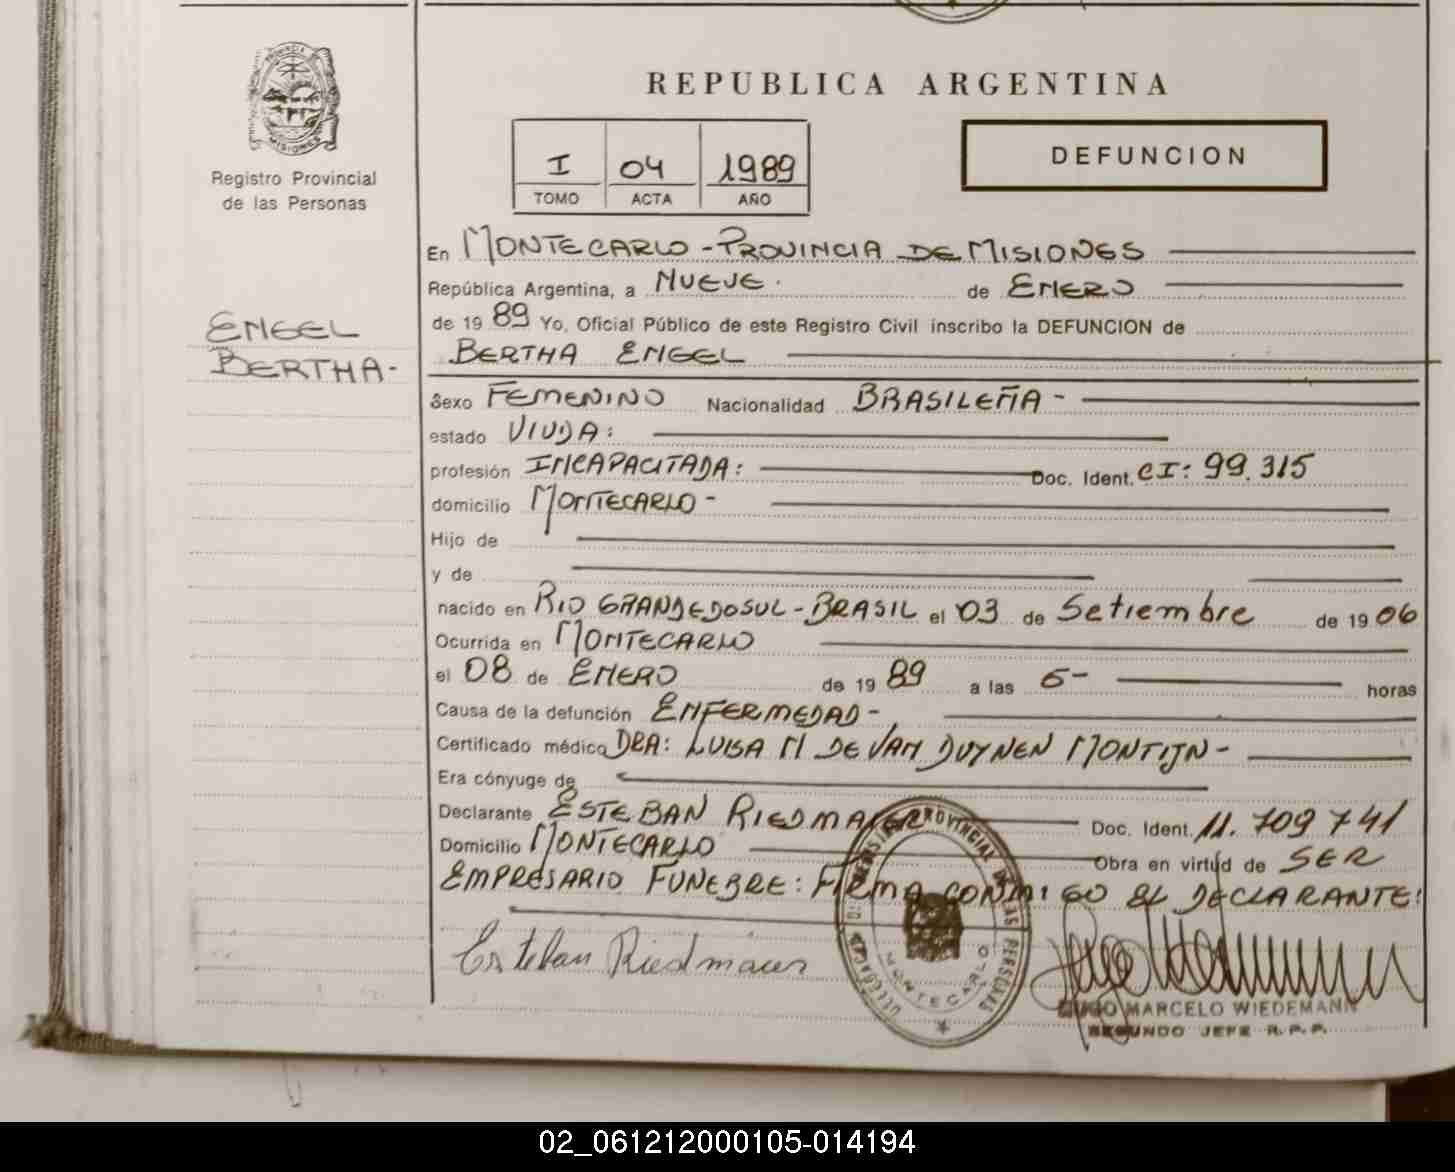 PROVINCIA
MISIONES
Registro Provincial
de las Personas
REPUBLICA ARGENTINA
I 04 1989
TOMO ACTA AÑO
DEFUNCION
En MONTECARLO - PROVINCIA DE MISIONES
República Argentina, a NUEVE. de ENERO
de 19 89 Yo, Oficial Público de este Registro Civil inscribo la DEFUNCION de
BERTHA ENGEL
ENGEL
BERTHA-
Sexo FEMENINO Nacionalidad BRASILEÑA -
estado VIUDA:
profesión INCAPACITADA: Doc. Ident. CI: 99.315
domicilio MONTECARLO -
Hijo de
y de
nacido en RIO GRANDE DO SUL - BRASIL el 03 de Setiembre de 19 06
Ocurrida en MONTECARLO
el 08 de ENERO de 19 89 a las 6- horas
Causa de la defunción ENFERMEDAD -
Certificado médico DRA: LUISA M DE VAN DUYNEN MONTIJN -
Era cónyuge de
Declarante ESTEBAN RIEDMAIER Doc. Ident. 11.709741
Domicilio MONTECARLO Obra en virtud de SER
EMPRESARIO FUNEBRE: FIRMA CONMIGO EL DECLARANTE:
Esteban Riedmaier
PROVINCIAL DE LAS PERSONAS
MONTECARLO
MARCELO WIEDEMANN
SEGUNDO JEFE R.P.P.
02_061212000105-014194